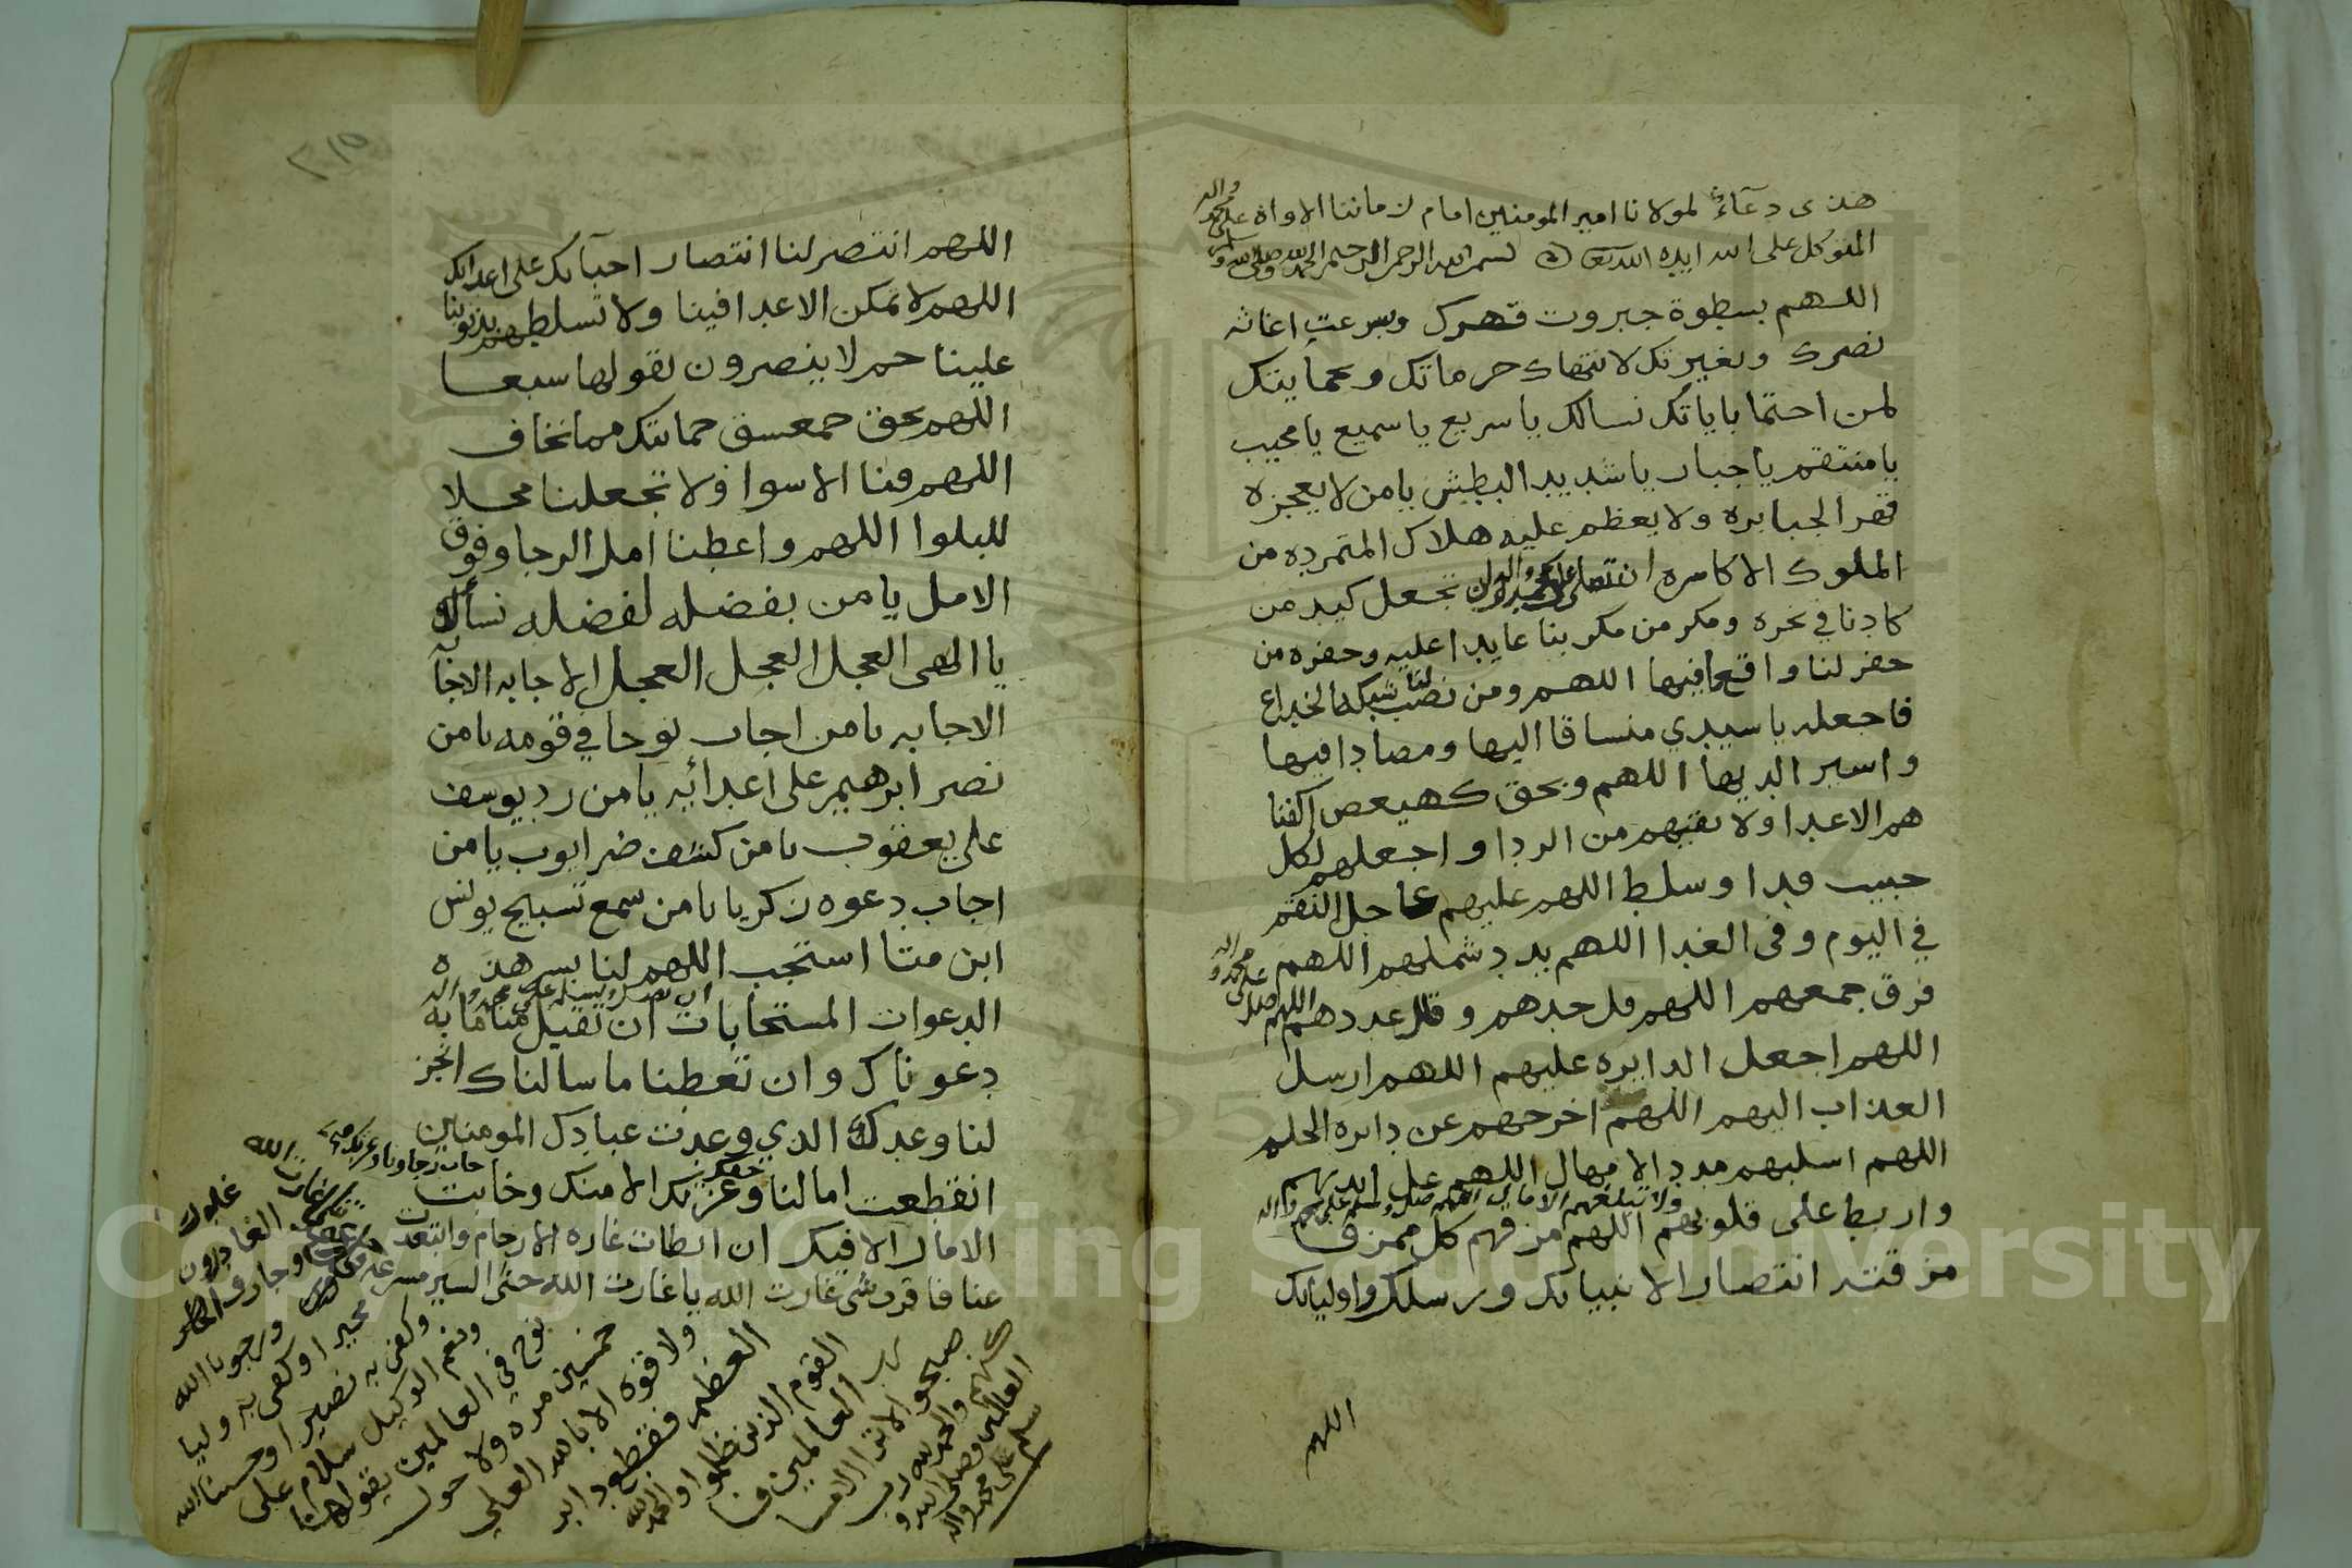 هذى دعاء لمولانا امير المومنين امام زماننا الاواه
المتوكل على الله ايده الله بسم الله الرحمن الرحيم الحمد لله
اللهم بسطوة جبروت قهرك وبسرعت اغاثه
نصرك وبغيرتك لانتهاك حرماتك وبحمايتك
لمن احتما باياتك نسالك يا سريع يا سميع يا مجيب
يا منتقم يا جبار يا شديد البطش يا من لا يعجزه
قهر الجبابره ولا يعظم عليه هلاك المتمرده من
الملوك الاكاسره ان تصلي على محمد واله وان تجعل كيد من
كادنا في نحره ومكر من مكر بنا عايدا عليه وحفره من
حفر لنا واقعا فيها اللهم ومن نصب لنا شبكة الخداع
فاجعله يا سيدي منساقا اليها ومصادا فيها
واسير الديها اللهم وبحق كهيعص اكفنا
هم الاعدا ولا تقيهم من الردا واجعلهم لكل
حبيب فدا وسلط اللهم عليهم عاجل النقم
في اليوم وفى الغدا اللهم بدد شملهم اللهم
فرق جمعهم اللهم فل حدهم وقلل عددهم اللهم صل على محمد واله
اللهم اجعل الدايره عليهم اللهم ارسل
العذاب اليهم اللهم اخرجهم عن دايره الحلم
اللهم اسلبهم مدد الامهال اللهم غل ايديهم
واربط على قلوبهم ولا تبلغهم الامال اللهم مزقهم كل ممزق
مزقته انتصارا لانبيائك ورسلك واوليائك
اللهم
٢١٥
اللهم انتصر لنا انتصار احبآئك على اعدائك
اللهم لا تمكن الاعدا فينا ولا تسلطهم بذنوبنا
علينا حم لا ينصرون تقولها سبعا
اللهم بحق حمعسق حمايتك مما نخاف
اللهم قنا الاسوا ولا تجعلنا محلا
للبلوا اللهم واعطنا امل الرجا وفوق
الامل يا من بفضله لفضله نسأله
يا الهى العجل العجل العجل الاجابه الاجابه
الاجابه يا من اجاب نوحا في قومه يا من
نصر ابرهيم على اعدائه يا من رد يوسف
على يعقوب يا من كشف ضر ايوب يا من
اجاب دعوه زكريا يا من سمع تسبيح يونس
ابن متا استجب اللهم لنا بسر هذه
الدعوات المستجابات ان تقبل منا ما به
دعوناك وان تعطنا ما سالناك انجز
لنا وعدك الذي وعدت عبادك المومنين
انقطعت امالنا وعزتك الا منك وخابت
الامال الا فيك ان ابطات غاره الارحام وابتعدت
عنا فاقرب شي غارت الله يا غارت الله حثى السير مسرعه
ورجونا الله
مجيرا وكفى به وليا
وكفى به نصيرا وحسبنا الله
ونعم الوكيل سلام على
نوح في العالمين يقولها
خمسين مره ولا حول
ولا قوه الا بالله العلي
العظيم فقطع دابر
القوم الذين ظلموا والحمد لله
رب العالمين